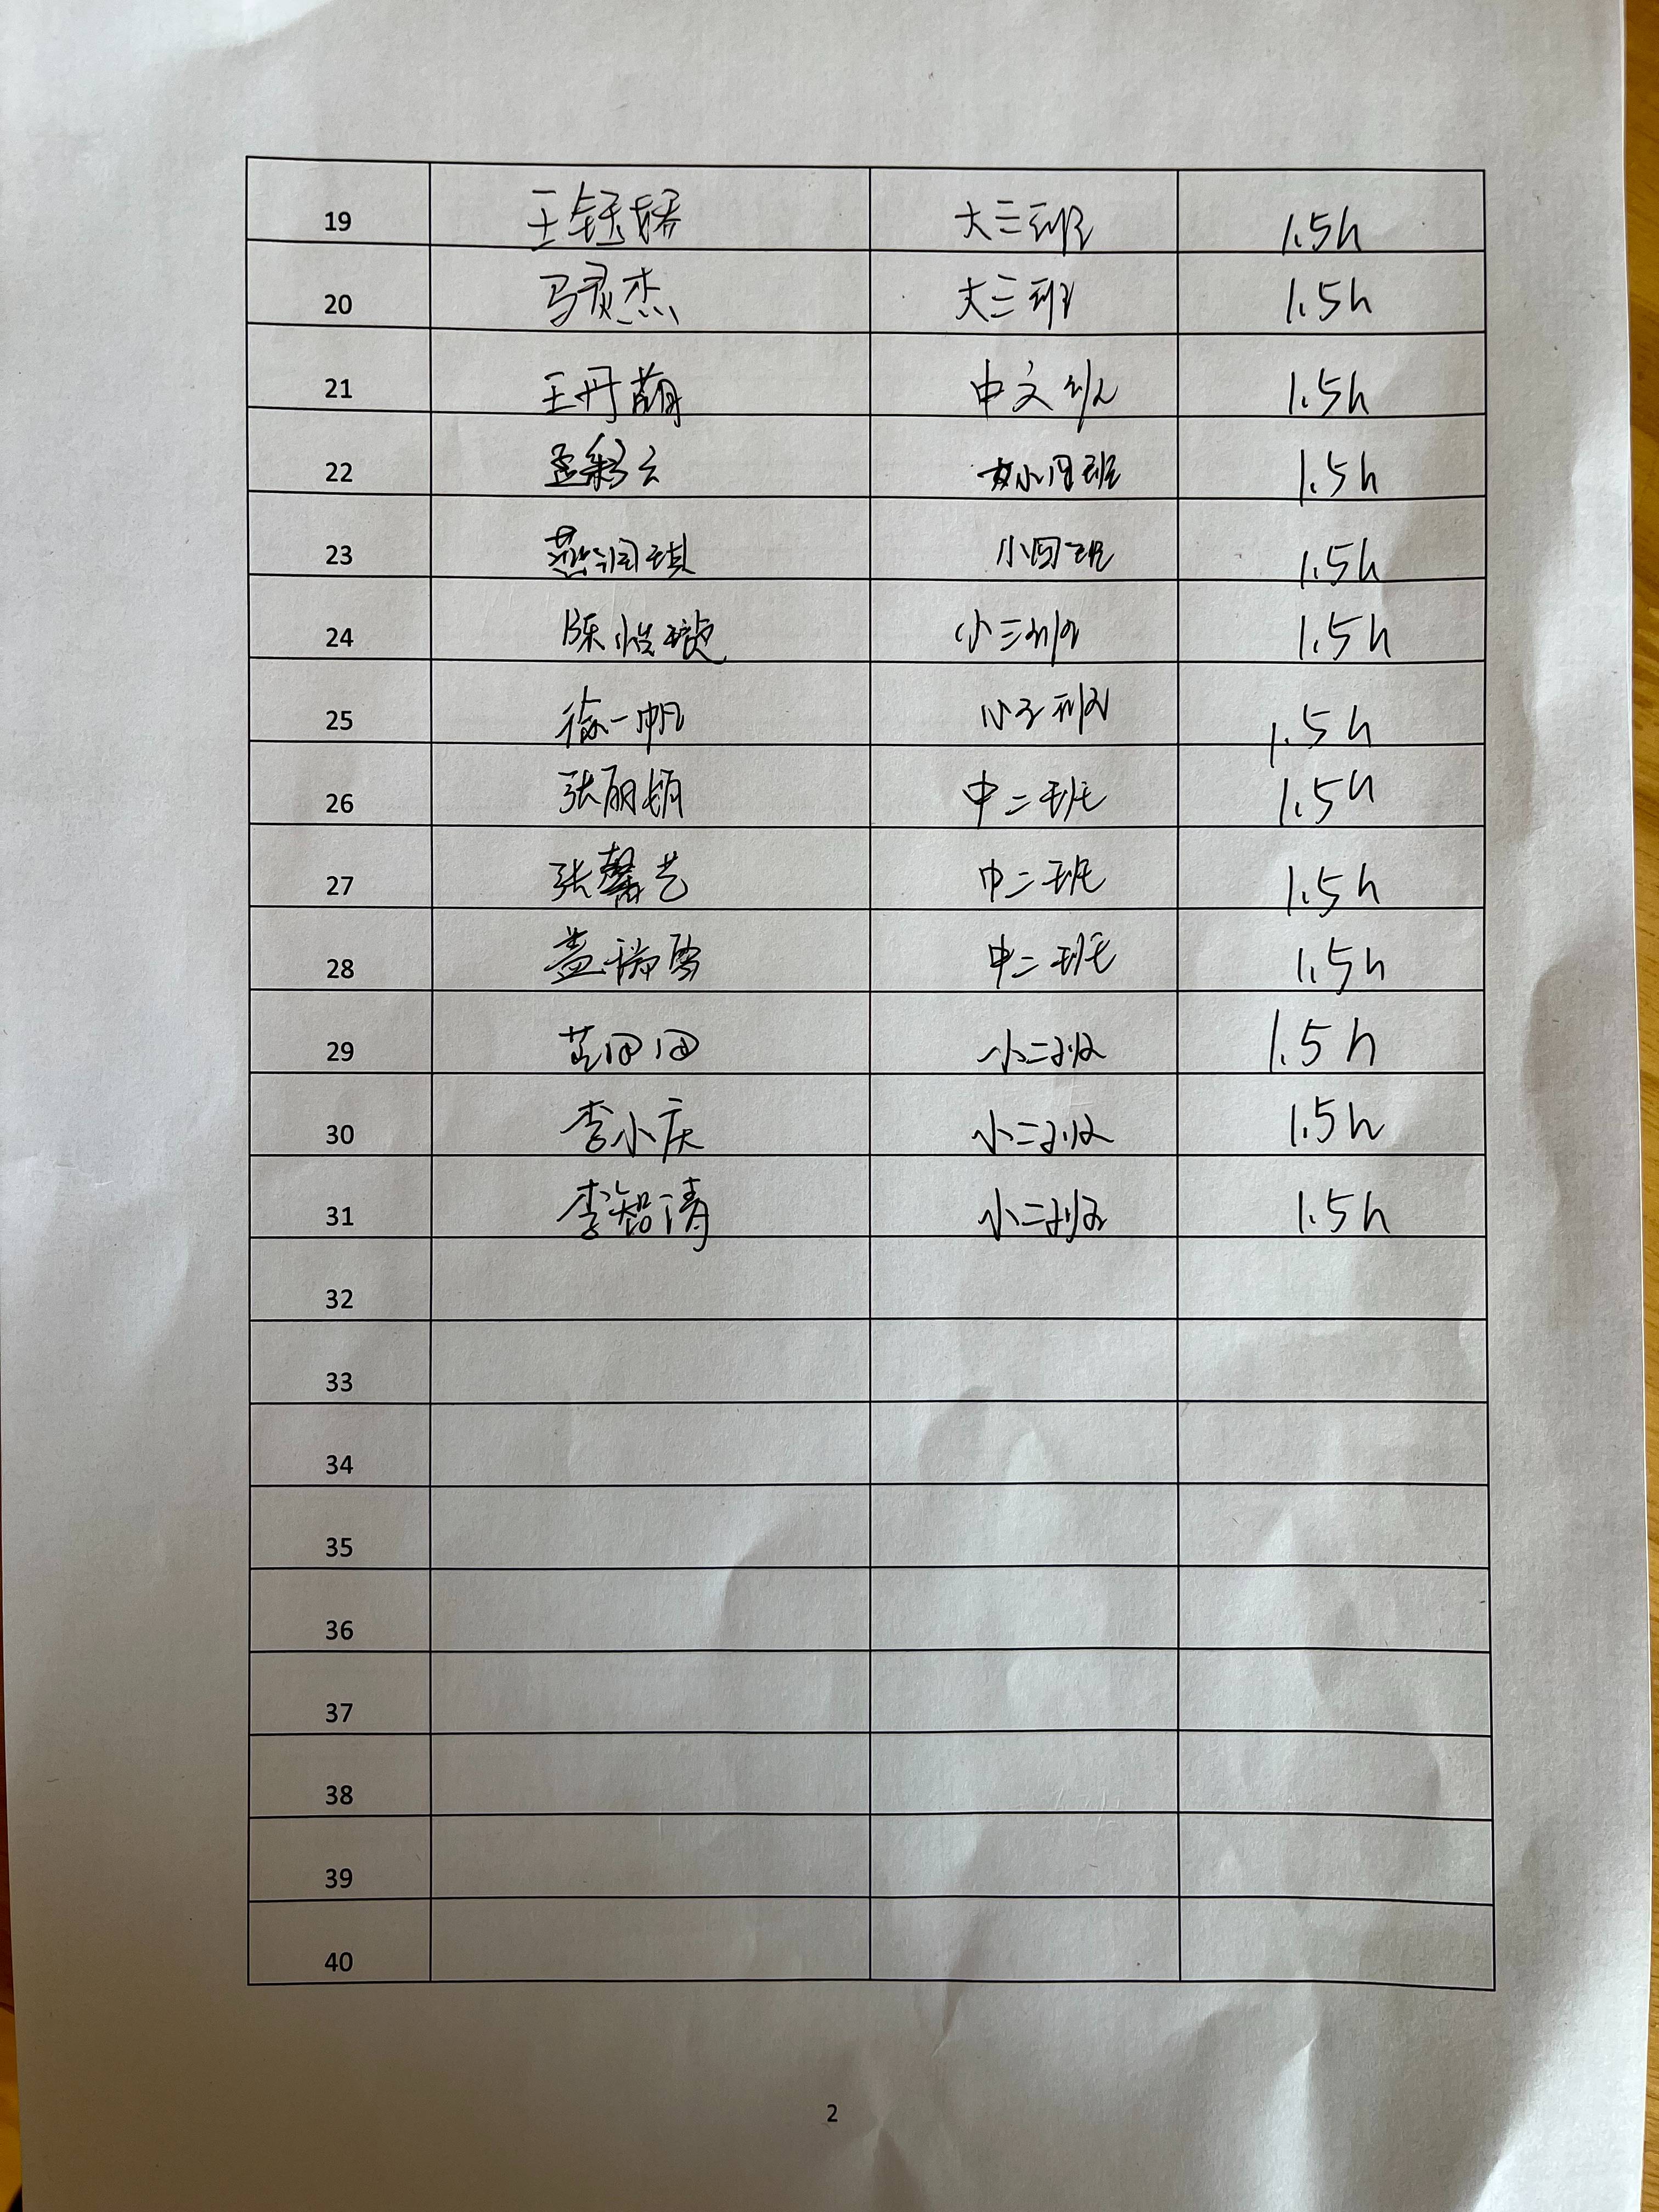 19 王钰婷 大三班 1.5h
20 马灵杰 大三班 1.5h
21 王丹萌 中文班 1.5h
22 孟彩云 小四班 1.5h
23 燕润琪 小四班 1.5h
24 陈怡璇 小三班 1.5h
25 徐一帆 小三班 1.5h
26 张丽娟 中二班 1.5h
27 张馨艺 中二班 1.5h
28 盖瑞雪 中二班 1.5h
29 田田 小二班 1.5h
30 李小庆 小二班 1.5h
31 李智清 小二班 1.5h
32
33
34
35
36
37
38
39
40
2